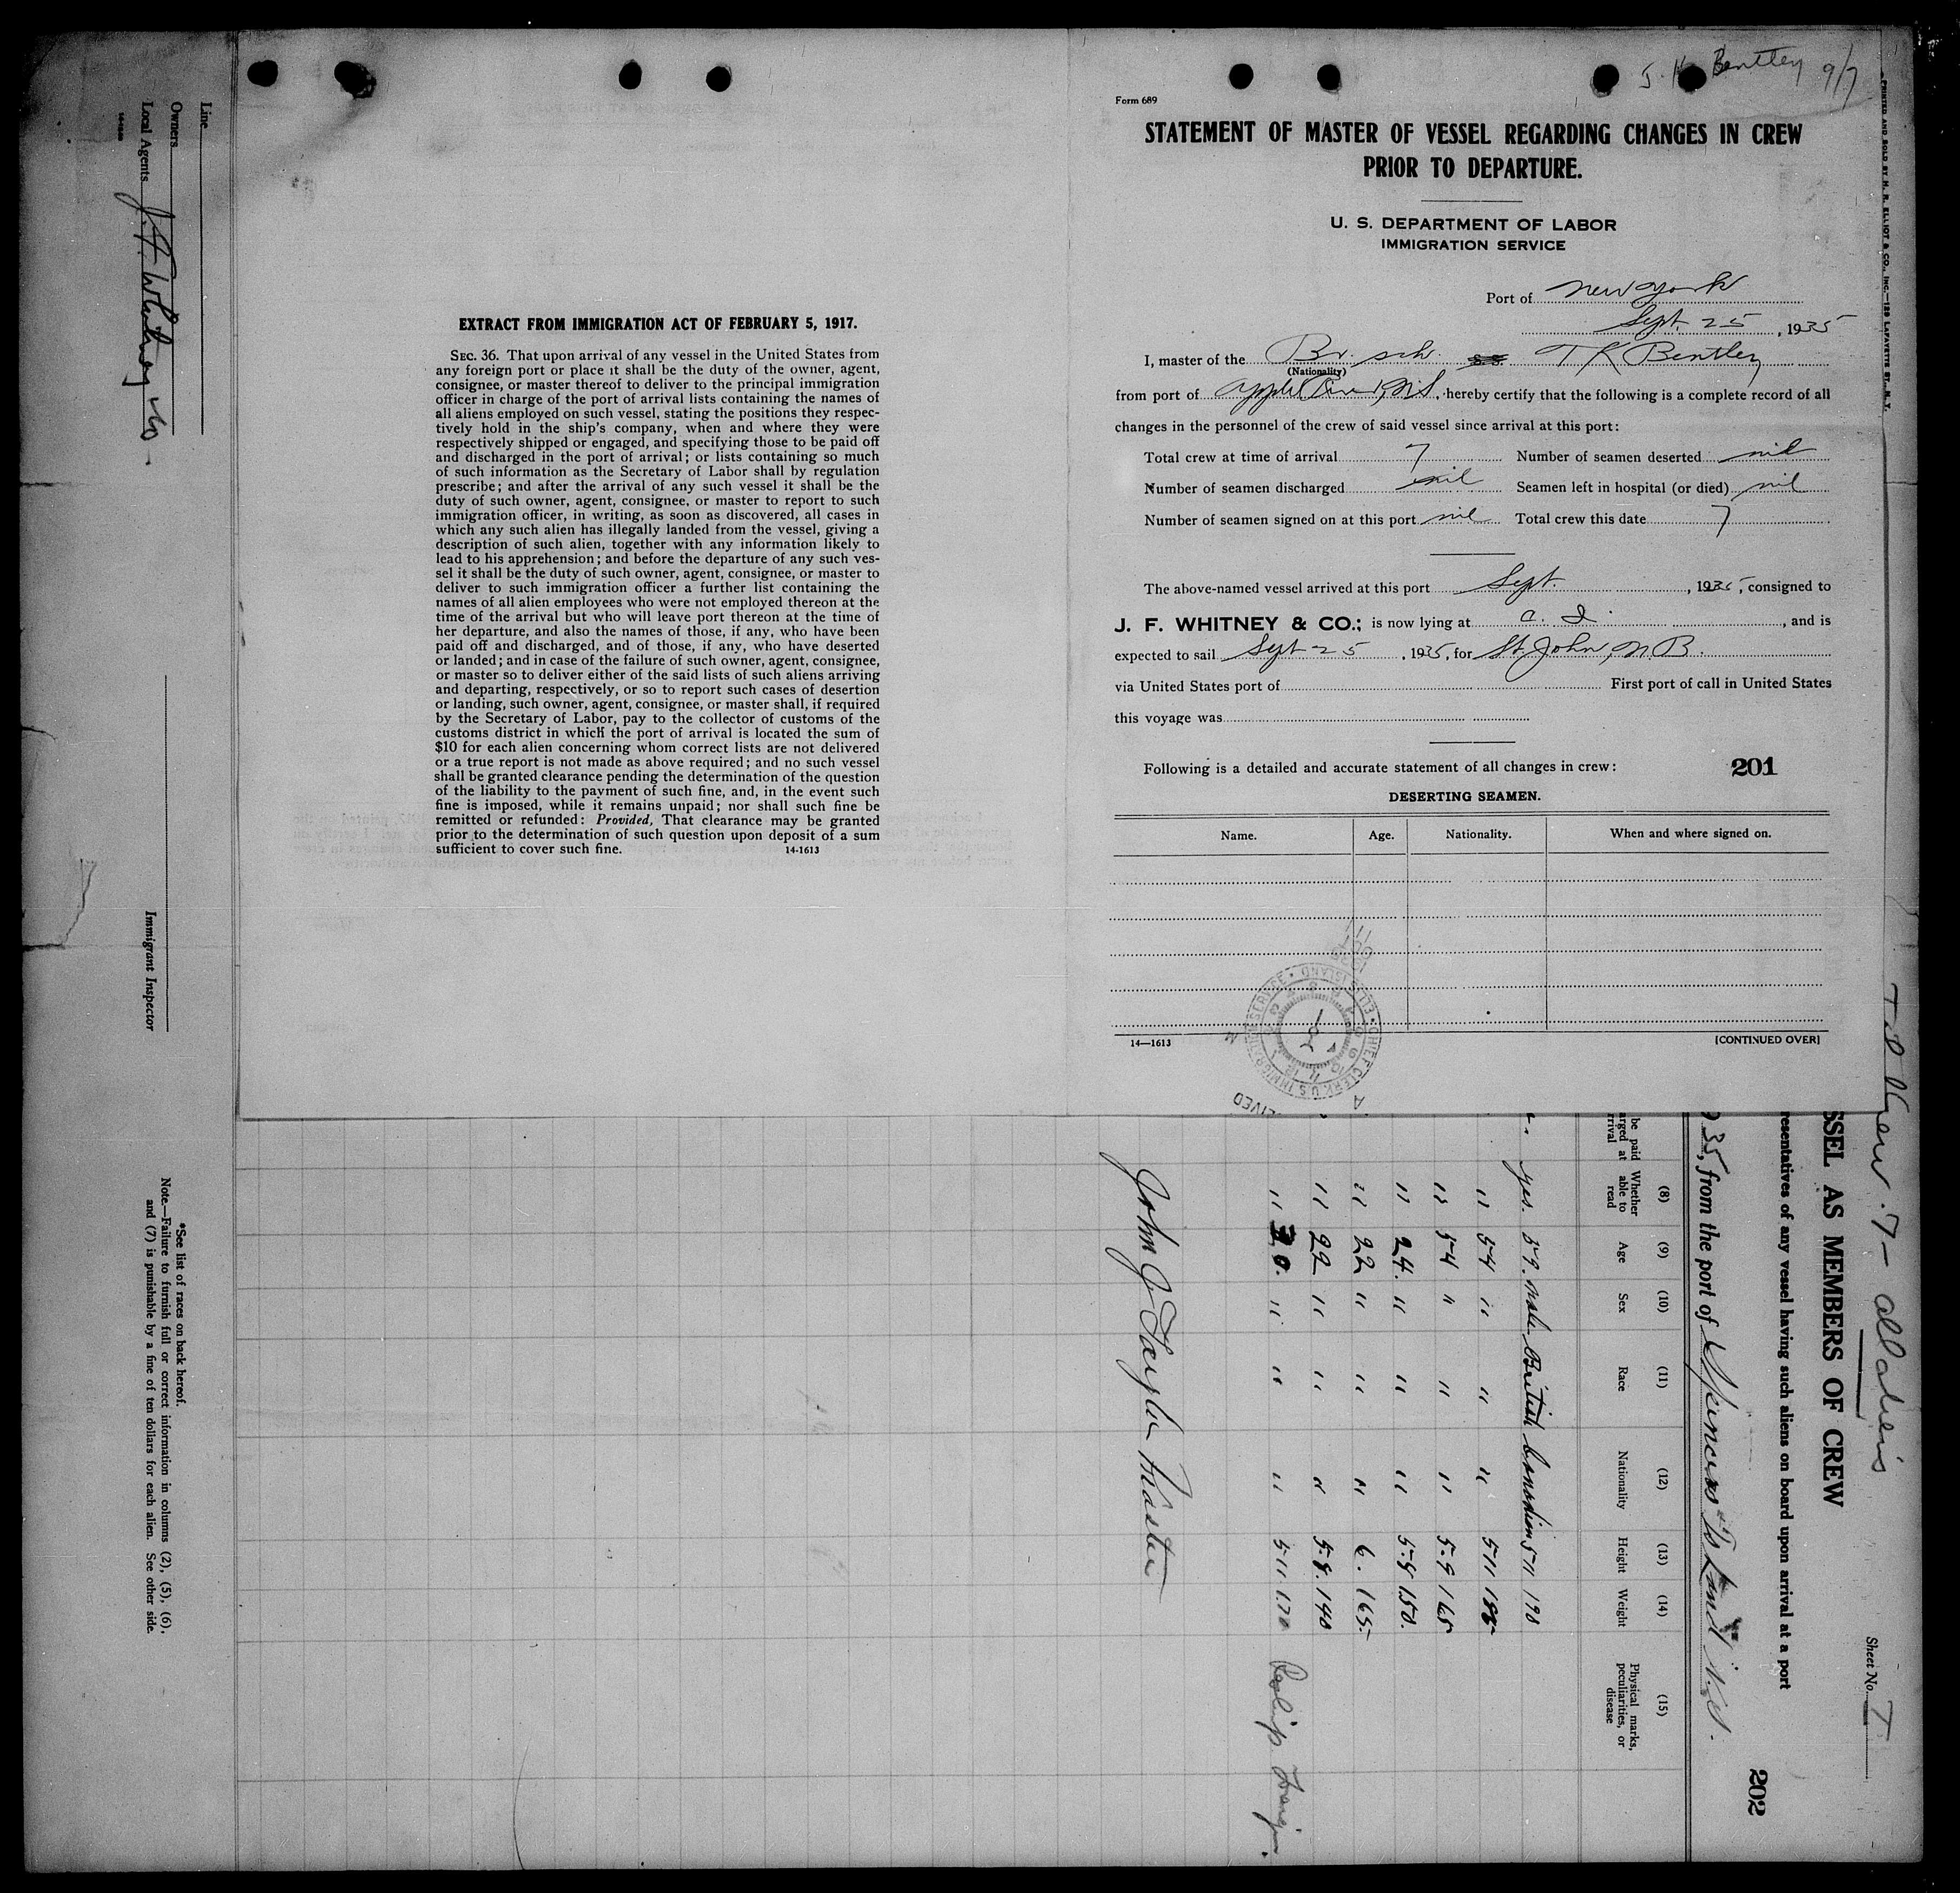 Bentley 9/7
Form 689
STATEMENT OF MASTER OF VESSEL REGARDING CHANGES IN CREW
PRIOR TO DEPARTURE.
U. S. DEPARTMENT OF LABOR
IMMIGRATION SERVICE
Port of New York
Sept. 25, 1935
I, master of the Br. sch. T K Bentley
(Nationality)
from port of Apple River, N.S., hereby certify that the following is a complete record of all
changes in the personnel of the crew of said vessel since arrival at this port:
Total crew at time of arrival 7 Number of seamen deserted nil
Number of seamen discharged nil Seamen left in hospital (or died) nil
Number of seamen signed on at this port nil Total crew this date 7
The above-named vessel arrived at this port Sept. , 1935, consigned to
J. F. WHITNEY & CO.; is now lying at C. I. , and is
expected to sail Sept 25, 1935, for St. John, N.B.
via United States port of First port of call in United States
this voyage was
Following is a detailed and accurate statement of all changes in crew: 201
DESERTING SEAMEN.
Name. Age. Nationality. When and where signed on.
14—1613 [CONTINUED OVER]
CHIEF CLERK U.S. IMMIGRATION SERVICE ELLIS ISLAND
PRINTED AND SOLD BY H. R. ELLIOT & CO., INC.—129 LAFAYETTE ST., N.Y.
EXTRACT FROM IMMIGRATION ACT OF FEBRUARY 5, 1917.
SEC. 36. That upon arrival of any vessel in the United States from
any foreign port or place it shall be the duty of the owner, agent,
consignee, or master thereof to deliver to the principal immigration
officer in charge of the port of arrival lists containing the names of
all aliens employed on such vessel, stating the positions they respec-
tively hold in the ship's company, when and where they were
respectively shipped or engaged, and specifying those to be paid off
and discharged in the port of arrival; or lists containing so much
of such information as the Secretary of Labor shall by regulation
prescribe; and after the arrival of any such vessel it shall be the
duty of such owner, agent, consignee, or master to report to such
immigration officer, in writing, as soon as discovered, all cases in
which any such alien has illegally landed from the vessel, giving a
description of such alien, together with any information likely to
lead to his apprehension; and before the departure of any such ves-
sel it shall be the duty of such owner, agent, consignee, or master to
deliver to such immigration officer a further list containing the
names of all alien employees who were not employed thereon at the
time of the arrival but who will leave port thereon at the time of
her departure, and also the names of those, if any, who have been
paid off and discharged, and of those, if any, who have deserted
or landed; and in case of the failure of such owner, agent, consignee,
or master so to deliver either of the said lists of such aliens arriving
and departing, respectively, or so to report such cases of desertion
or landing, such owner, agent, consignee, or master shall, if required
by the Secretary of Labor, pay to the collector of customs of the
customs district in which the port of arrival is located the sum of
$10 for each alien concerning whom correct lists are not delivered
or a true report is not made as above required; and no such vessel
shall be granted clearance pending the determination of the question
of the liability to the payment of such fine, and, in the event such
fine is imposed, while it remains unpaid; nor shall such fine be
remitted or refunded: Provided, That clearance may be granted
prior to the determination of such question upon deposit of a sum
sufficient to cover such fine. 14-1613
Crew 7 - all aliens
Sheet No. 1
SSEL AS MEMBERS OF CREW
resentatives of any vessel having such aliens on board upon arrival at a port
202
35, from the port of Spencers Island N.S.
(8) (9) (10) (11) (12) (13) (14) (15)
be paid
arged at
rrival
Whether able to read Age Sex Race Nationality Height Weight Physical marks, peculiarities, or disease
yes. 59. male British Canadian 5 11 190
" 54 " " " 5 11
" 54 " " " 5-9 165
" 24. " " " 5-8 150.
" 22 " " " 6. 165.
" 22 " " " 5.8. 140
" 30. " " " 5.11. 170
John G Taylor Master
Line
Owners
Local Agents J. F. Whitney & Co.
Immigrant Inspector
*See list of races on back hereof.
Note.—Failure to furnish full or correct information in columns (2), (5), (6),
and (7) is punishable by a fine of ten dollars for each alien. See other side.